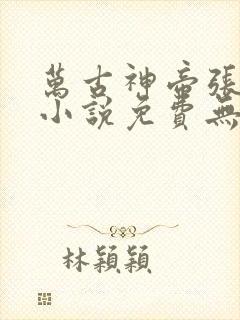 萬古神帝張
小說免費無
林穎穎